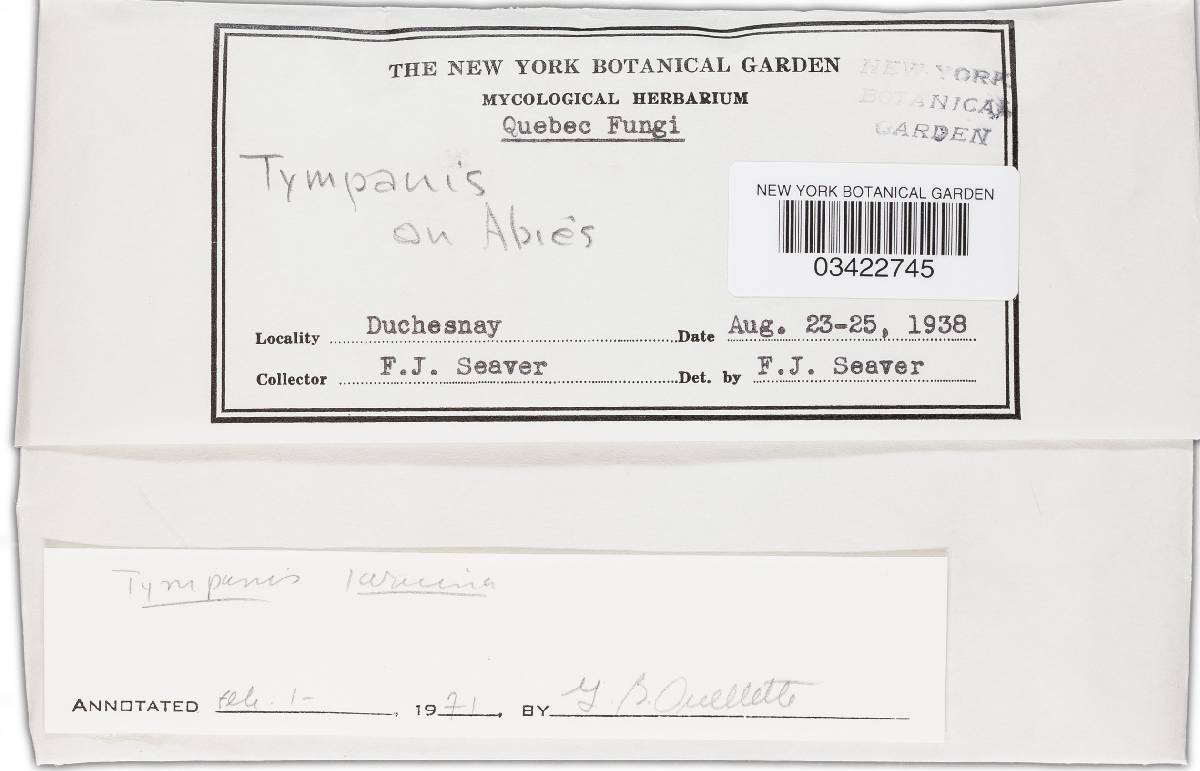 THE NEW YORK BOTANICAL GARDEN
MYCOLOGICAL HERBARIUM
Quebec Fungi
NEW YORK
BOTANICAL
GARDEN
Tympanis
on Abies
NEW YORK BOTANICAL GARDEN
03422745
Locality Duchesnay Date Aug. 23-25, 1938
Collector F.J. Seaver Det. by F.J. Seaver
Tympanis laricina
ANNOTATED Feb. 1-, 1971, BY G. B. Ouellette